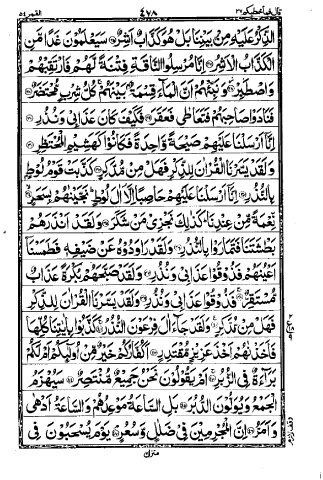 قال فما خطبكم ٢٧ ٤٧٨ القمر ٥٤
الذِّكْرُ عَلَيْهِ مِنْۢ بَيْنِنَا بَلْ هُوَ كَذَّابٌ اَشِرٌ سَيَعْلَمُوْنَ غَدًا مَّنِ
الْكَذَّابُ الْاَشِرُ اِنَّا مُرْسِلُوا النَّاقَةِ فِتْنَةً لَّهُمْ فَارْتَقِبْهُمْ
وَاصْطَبِرْ وَنَبِّئْهُمْ اَنَّ الْمَآءَ قِسْمَةٌۢ بَيْنَهُمْ كُلُّ شِرْبٍ مُّحْتَضَرٌ
فَنَادَوْا صَاحِبَهُمْ فَتَعَاطٰى فَعَقَرَ فَكَيْفَ كَانَ عَذَابِيْ وَنُذُرِ
اِنَّآ اَرْسَلْنَا عَلَيْهِمْ صَيْحَةً وَّاحِدَةً فَكَانُوْا كَهَشِيْمِ الْمُحْتَظِرِ
وَلَقَدْ يَسَّرْنَا الْقُرْاٰنَ لِلذِّكْرِ فَهَلْ مِنْ مُّدَّكِرٍ كَذَّبَتْ قَوْمُ لُوْطٍۭ
بِالنُّذُرِ اِنَّآ اَرْسَلْنَا عَلَيْهِمْ حَاصِبًا اِلَّآ اٰلَ لُوْطٍ نَجَّيْنٰهُمْ بِسَحَرٍ
نِّعْمَةً مِّنْ عِنْدِنَا كَذٰلِكَ نَجْزِيْ مَنْ شَكَرَ وَلَقَدْ اَنْذَرَهُمْ
بَطْشَتَنَا فَتَمَارَوْا بِالنُّذُرِ وَلَقَدْ رَاوَدُوْهُ عَنْ ضَيْفِهٖ فَطَمَسْنَآ
اَعْيُنَهُمْ فَذُوْقُوْا عَذَابِيْ وَنُذُرِ وَلَقَدْ صَبَّحَهُمْ بُكْرَةً عَذَابٌ
مُّسْتَقِرٌّ فَذُوْقُوْا عَذَابِيْ وَنُذُرِ وَلَقَدْ يَسَّرْنَا الْقُرْاٰنَ لِلذِّكْرِ
فَهَلْ مِنْ مُّدَّكِرٍ وَلَقَدْ جَآءَ اٰلَ فِرْعَوْنَ النُّذُرُ كَذَّبُوْا بِاٰيٰتِنَا كُلِّهَا
فَاَخَذْنٰهُمْ اَخْذَ عَزِيْزٍ مُّقْتَدِرٍ اَكُفَّارُكُمْ خَيْرٌ مِّنْ اُولٰٓئِكُمْ اَمْ لَكُمْ
بَرَآءَةٌ فِي الزُّبُرِ اَمْ يَقُوْلُوْنَ نَحْنُ جَمِيْعٌ مُّنْتَصِرٌ سَيُهْزَمُ
الْجَمْعُ وَيُوَلُّوْنَ الدُّبُرَ بَلِ السَّاعَةُ مَوْعِدُهُمْ وَالسَّاعَةُ اَدْهٰى
وَاَمَرُّ اِنَّ الْمُجْرِمِيْنَ فِيْ ضَلٰلٍ وَّسُعُرٍ يَوْمَ يُسْحَبُوْنَ فِي
منزل